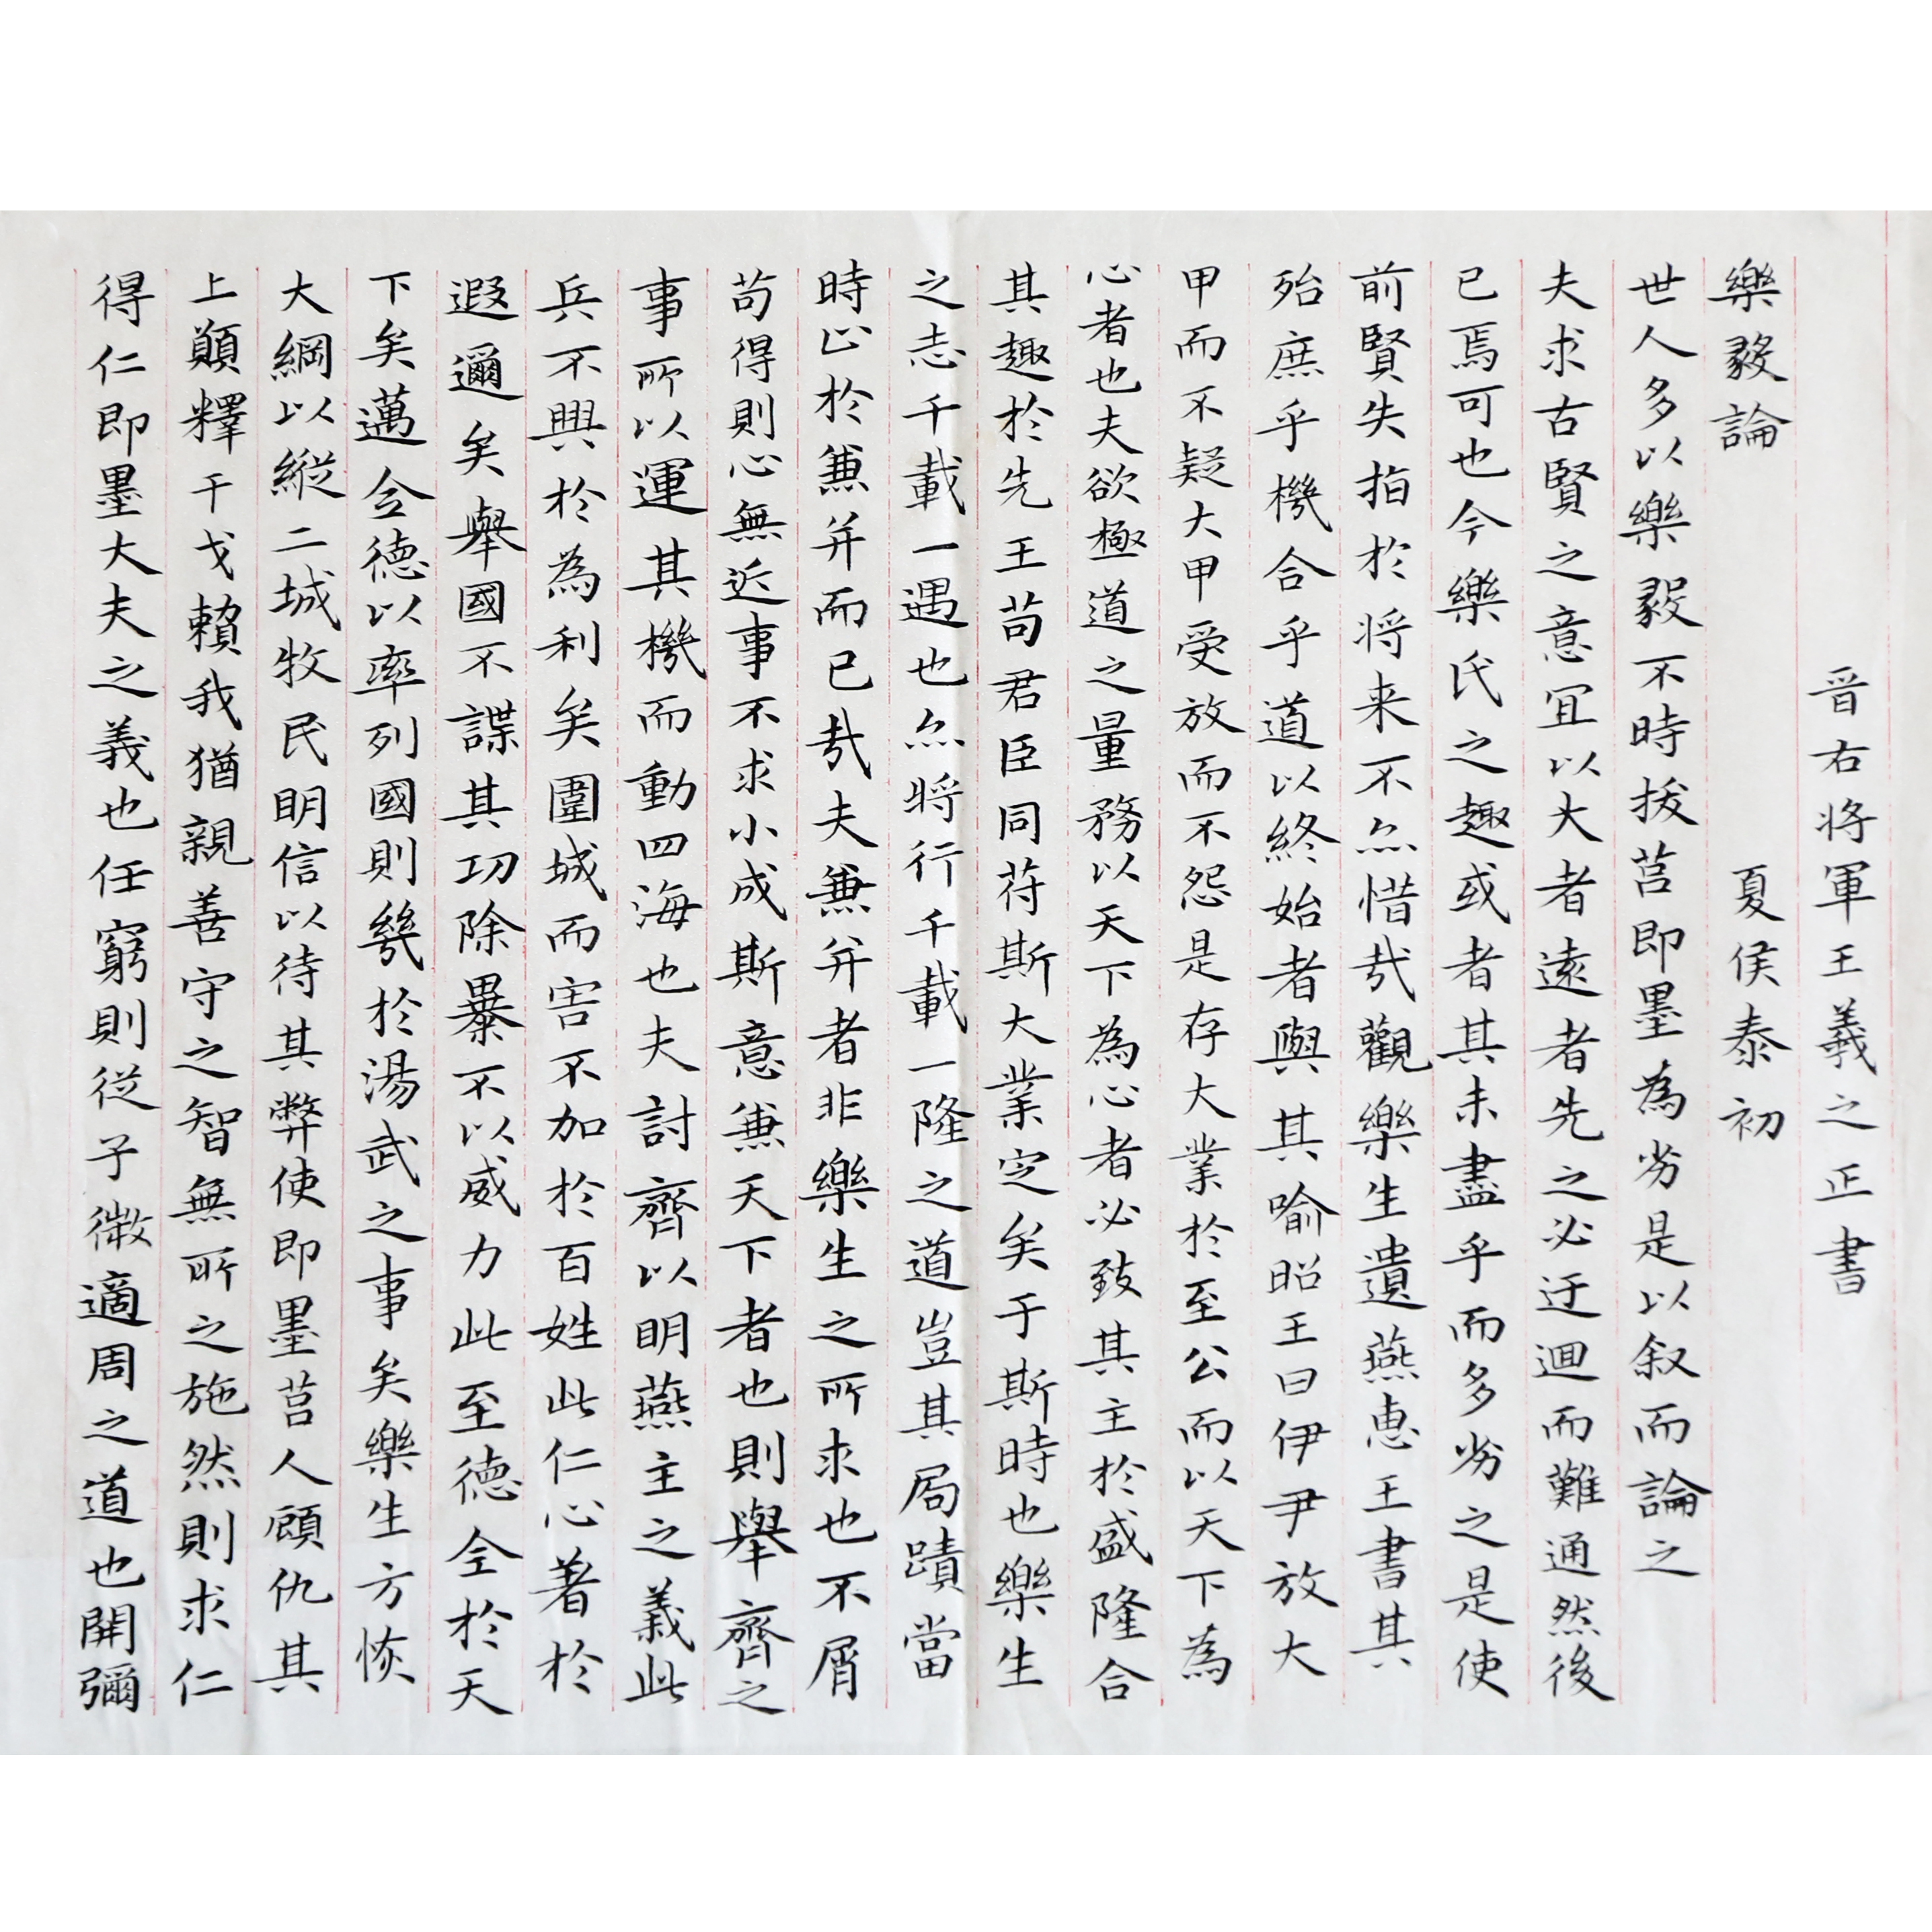 晉右將軍王羲之正書
樂毅論 夏侯泰初
世人多以樂毅不時拔莒即墨為劣是以叙而論之
夫求古賢之意宜以大者遠者先之必迂迴而難通然後
已焉可也今樂氏之趣或者其未盡乎而多劣之是使
前賢失指於将来不亦惜㢤觀樂生遺燕惠王書其
殆庶乎機合乎道以終始者與其喻昭王曰伊尹放大
甲而不疑大甲受放而不怨是存大業於至公而以天下為
心者也夫欲極道之量務以天下為心者必致其主於盛隆合
其趣於先王苟君臣同苻斯大業定矣于斯時也樂生
之志千載一遇也亦將行千載一隆之道豈其局蹟當
時止於兼并而已㢤夫兼并者非樂生之所求也不屑
苟得則心無近事不求小成斯意兼天下者也則舉齊之
事所以運其機而動四海也夫討齊以明燕主之義此
兵不興於為利矣圍城而害不加於百姓此仁心著於
遐邇矣舉國不謀其功除暴不以威力此至德全於天
下矣邁全德以率列國則幾於湯武之事矣樂生方恢
大綱以縱二城牧民明信以待其弊使即墨莒人顧仇其
上願釋干戈賴我猶親善守之智無所之施然則求仁
得仁即墨大夫之義也任窮則從子微適周之道也開彌